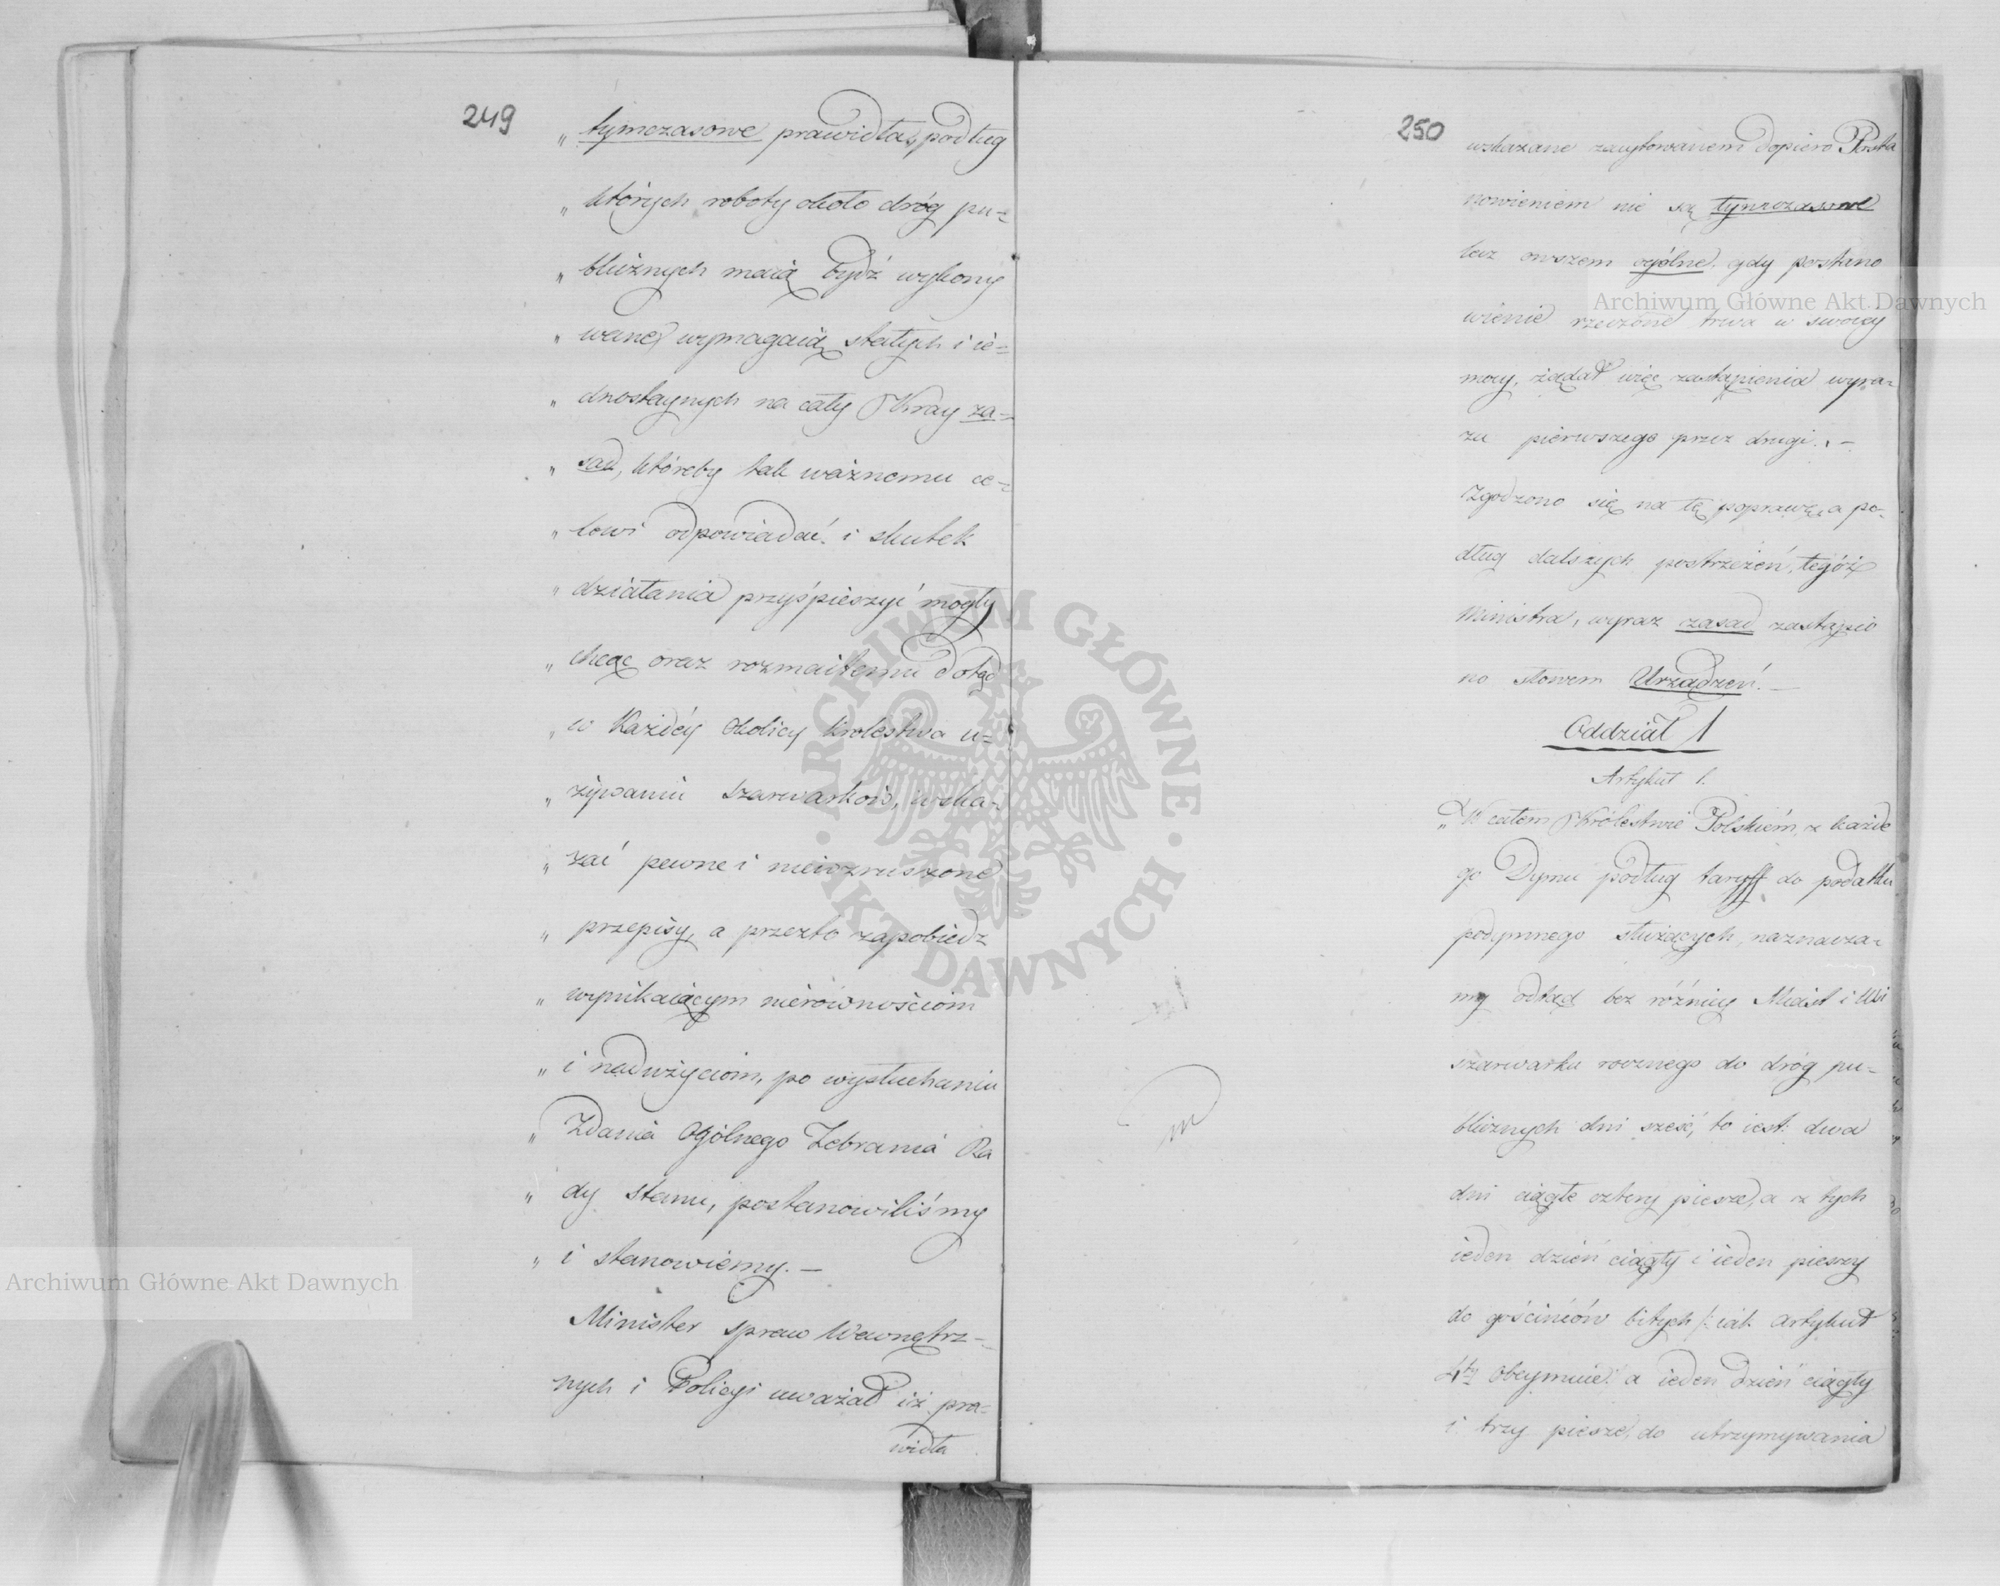 249
„ tymczasowe prawidła, podług
„ których roboty około dróg pu-
„ blicznych maią bydź wykony
„ wane, wymagaią stałych i ie-
„ dnostaynych na cały Kray za-
„ sad, któreby tak ważnemu ce-
„ lowi odpowiadać i skutek
„ działania przyśpieszyć mogły
„ chcąc oraz rozmaitemu dotąd
„ w Każdéy Okolicy Krolestwa u-
„ żywaniu szarwarków, wska-
„ zać pewne i niewzruszone
„ przepisy, a przezto zapobiedz
„ wynikaiącym nierównościom
„ i nadużyciom, po wysłuchaniu
„ Zdania Ogólnego Zebrania Ra
„ dy stanu, postanowiliśmy
„ i stanowiemy. —
Minister spraw Wewnętrz-
nych i Policyi uważał iż pra-
widła
250
wskazane zacytowanem dopiero Posta
nowieniem nie są tymczasowe
lecz owszem ogólne, gdy postano
wienie rzeczone trwa w swoiey
mocy, żądał więc zastąpienia wyra-
zu pierwszego przez drugi. —
Zgodzono się na tę poprawę, a po-
dług dalszych postrzeżeń tegóż
Ministra, wyraz zasad zastąpio
no słowem Urządzeń. —
Oddział 1
Artykuł 1.
„ W całem Królestwie Polskiém, z każde
go Dymu podług taryff do podatku
podymnego służących, naznacza-
my odtąd bez różnicy Miast i Wsi
szarwarku rocznego do dróg pu-
blicznych dni sześć, to iest: dwa
dni ciągłe cztery piesze, a z tych
ieden dzień ciągły i ieden pieszy
do gościńców bitych /: iak Artykuł
4ty obeymuie: a ieden dzień ciągły
i trzy piesze, do utrzymywania
Archiwum Główne Akt Dawnych
Archiwum Główne Akt Dawnych
ARCHIWUM GŁÓWNE · AKT DAWNYCH ·